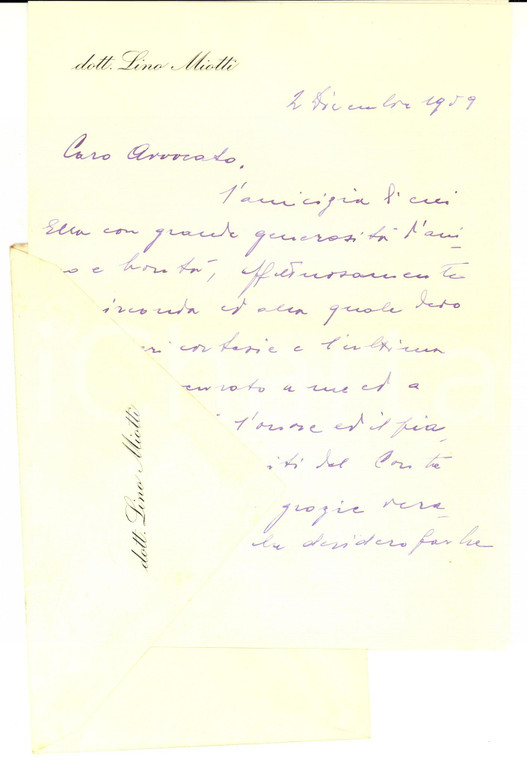 dott. Lino Miotti
2 Dicembre 1959
Caro Avvocato,
l'amicizia di cui
Ella con grande generosità d'ani-
o e bontà, affettuosamente
irconda ed alla quale devo
cortesie e l'ultima
curato a me ed a
l'onore ed il pia
iti dal Conte
grazie vera
che desidero farLe
dott. Lino Miotti